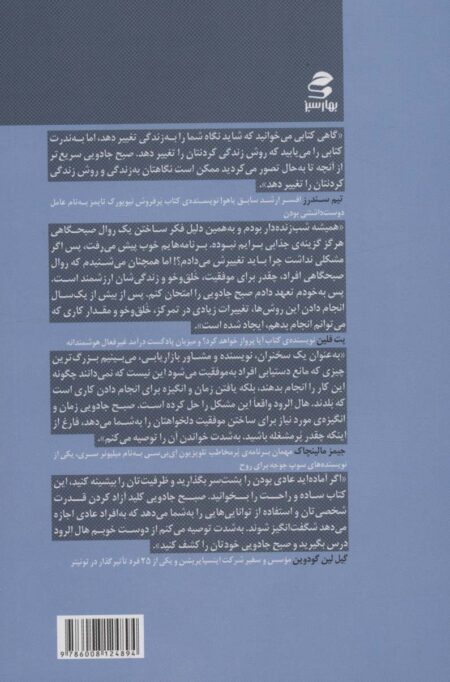 بهار سبز
«گاهی کتابی می‌خوانید که شاید نگاه شما را به‌زندگی تغییر دهد، اما به‌ندرت
کتابی را می‌یابید که روش زندگی کردنتان را تغییر دهد. صبح جادویی سریع‌تر
از آنچه تا به‌حال تصور می‌کردید ممکن است نگاهتان به‌زندگی و روش زندگی
کردنتان را تغییر دهد».
تیم سندرز افسر ارشد سابق یاهو؛ نویسنده‌ی کتاب پرفروش نیویورک تایمز به‌نام عامل
دوست‌داشتنی بودن
«همیشه شب‌زنده‌دار بودم و به‌همین دلیل فکر ساختن یک روال صبحگاهی
هرگز گزینه‌ی جذابی برایم نبوده. برنامه‌هایم خوب پیش می‌رفت، پس اگر
مشکلی نداشت چرا باید تغییرش می‌دادم؟! اما همچنان می‌شنیدم که روال
صبحگاهی افراد، چقدر برای موفقیت، خلق‌وخو و زندگی‌شان ارزشمند است،
پس به‌خودم تعهد دادم صبح جادویی را امتحان کنم. پس از بیش از یک‌سال
انجام دادن این روش‌ها، تغییرات زیادی در تمرکز، خلق‌وخو و مقدار کاری که
می‌توانم انجام بدهم، ایجاد شده است».
پت فلین نویسنده‌ی کتاب آیا پرواز خواهد کرد؟ و میزبان پادگست درآمد غیرفعال هوشمندانه
«به‌عنوان یک سخنران، نویسنده و مشاور بازاریابی، می‌بینیم بزرگ‌ترین
چیزی که مانع دستیابی افراد به‌موفقیت می‌شود این نیست که نمی‌دانند چگونه
این کار را انجام بدهند، بلکه یافتن زمان و انگیزه برای انجام دادن کاری است
که بلدند. هال الرود واقعاً این مشکل را حل کرده است. صبح جادویی زمان و
انگیزه‌ی مورد نیاز برای ساختن موفقیت دلخواهتان را به‌شما می‌دهد، فارغ از
اینکه چقدر پرمشغله باشید. به‌شدت خواندن آن را توصیه می‌کنم».
جیمز مالینچاک مهمان برنامه‌ی پرمخاطب تلویزیون ای‌بی‌سی به‌نام میلیونر سری، یکی از
نویسنده‌های سوپ جوجه برای روح
«اگر آماده‌اید عادی بودن را پشت‌سر بگذارید و ظرفیت‌تان را بیشینه کنید، این
کتاب ساده و راحت را بخوانید. صبح جادویی کلید آزاد کردن قدرت
شخصی‌تان و استفاده از توانایی‌هایی را به‌شما می‌دهد که به‌افراد عادی اجازه
می‌دهد شگفت‌انگیز شوند. به‌شدت توصیه می‌کنم از دوست خوبم هال الرود
درس بگیرید و صبح جادویی خودتان را کشف کنید».
گیل لین گودوین مؤسس و سفیر شرکت اینسپایریشن و یکی از ۲۵ فرد تأثیرگذار در توئیتر
9 786008 124894